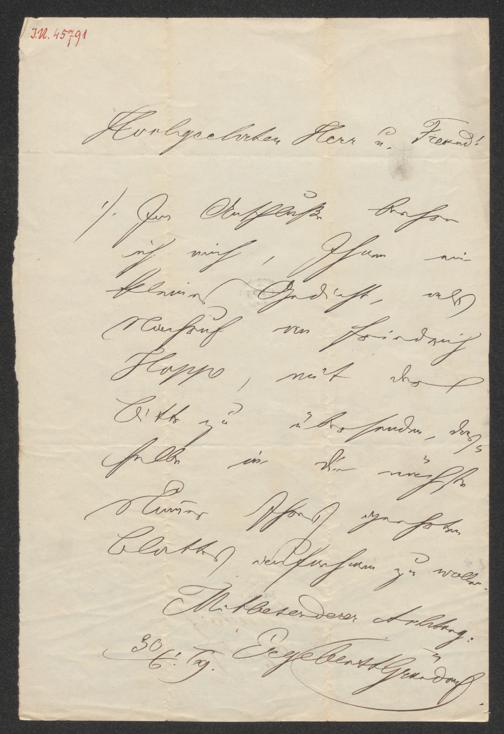 J.N. 45791
Hochgeehrter Herr u. Freund!
1/. Im Anschluße beehre
ich mich, Ihnen ein
kleines Gedicht, als
Nachruf an Friedrich
Hopp, mit der
Bitte zu übersenden, das
selbe in die nächste
Numer Ihres geehrten
Blattes aufnehmen zu wollen.
Mit besonderer Achtung.
30/6.